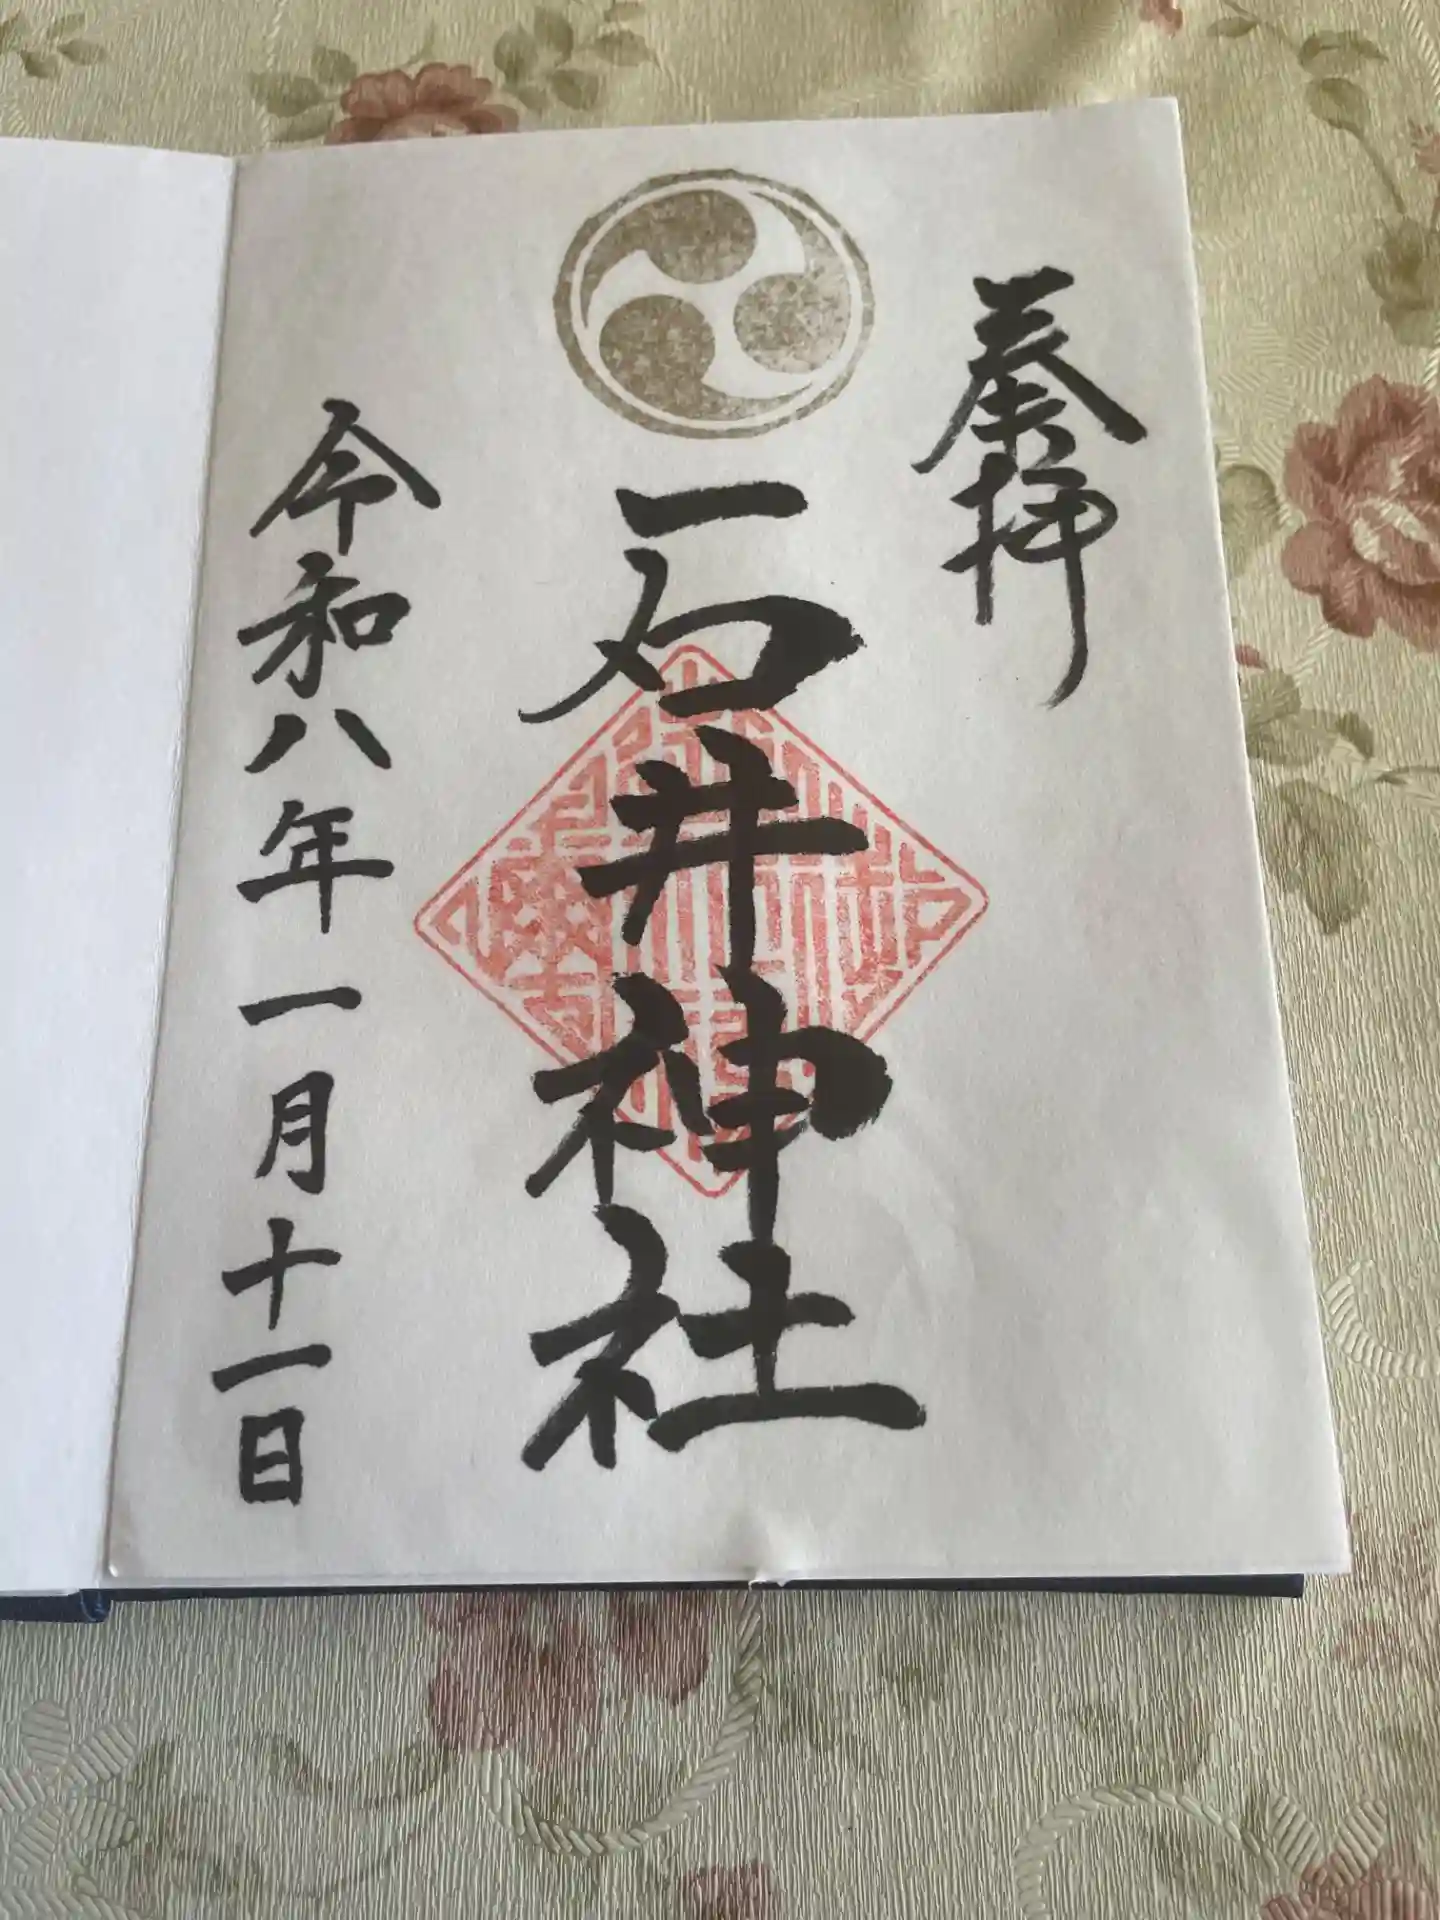 奉拝
石井神社
令和八年一月十一日